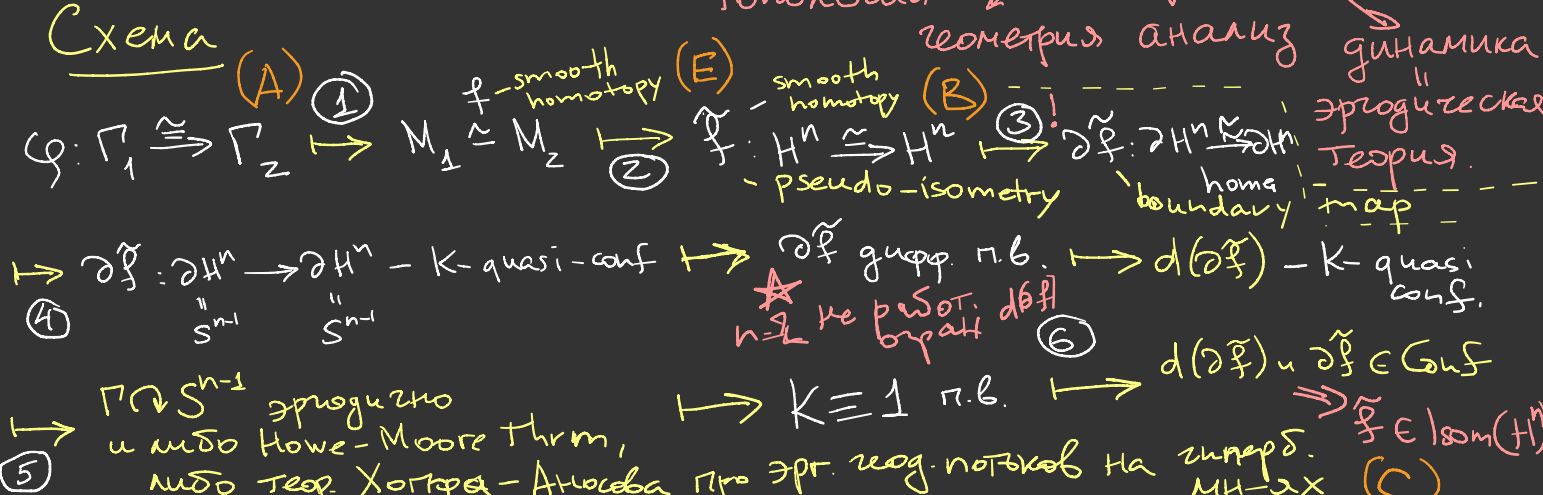 Схема
геометрия анализ
динамика
"
эргодическая
теория.
(A) (1) f - smooth homotopy (E) smooth homotopy (B) (3)!
φ: Γ₁ ≅⇒ Γ₂ ↦ M₁ ≃ M₂ ↦ f̃ : Hⁿ ≅⇒ Hⁿ ↦ ∂f̃ : ∂Hⁿ ≃⇒ ∂Hⁿ
(2) - pseudo-isometry
homeo
boundary map
↦ ∂f̃ : ∂Hⁿ → ∂Hⁿ - K-quasi-conf ↦ ∂f̃ дифф. п.в. ↦ d(∂f̃) - K-quasi conf.
(4) " "
Sⁿ⁻¹ Sⁿ⁻¹
не работ.
(6)
Γ↷Sⁿ⁻¹ эргодично
↦ и либо Howe-Moore Thrm, ↦ K≡1 п.в. ↦ d(∂f̃) и ∂f̃ ∈ Conf
⇒ f̃ ∈ Isom(Hⁿ)
(5) либо теор. Хопфа-Аносова про эрг. геод. потоков на гиперб.
мн-ях (C)